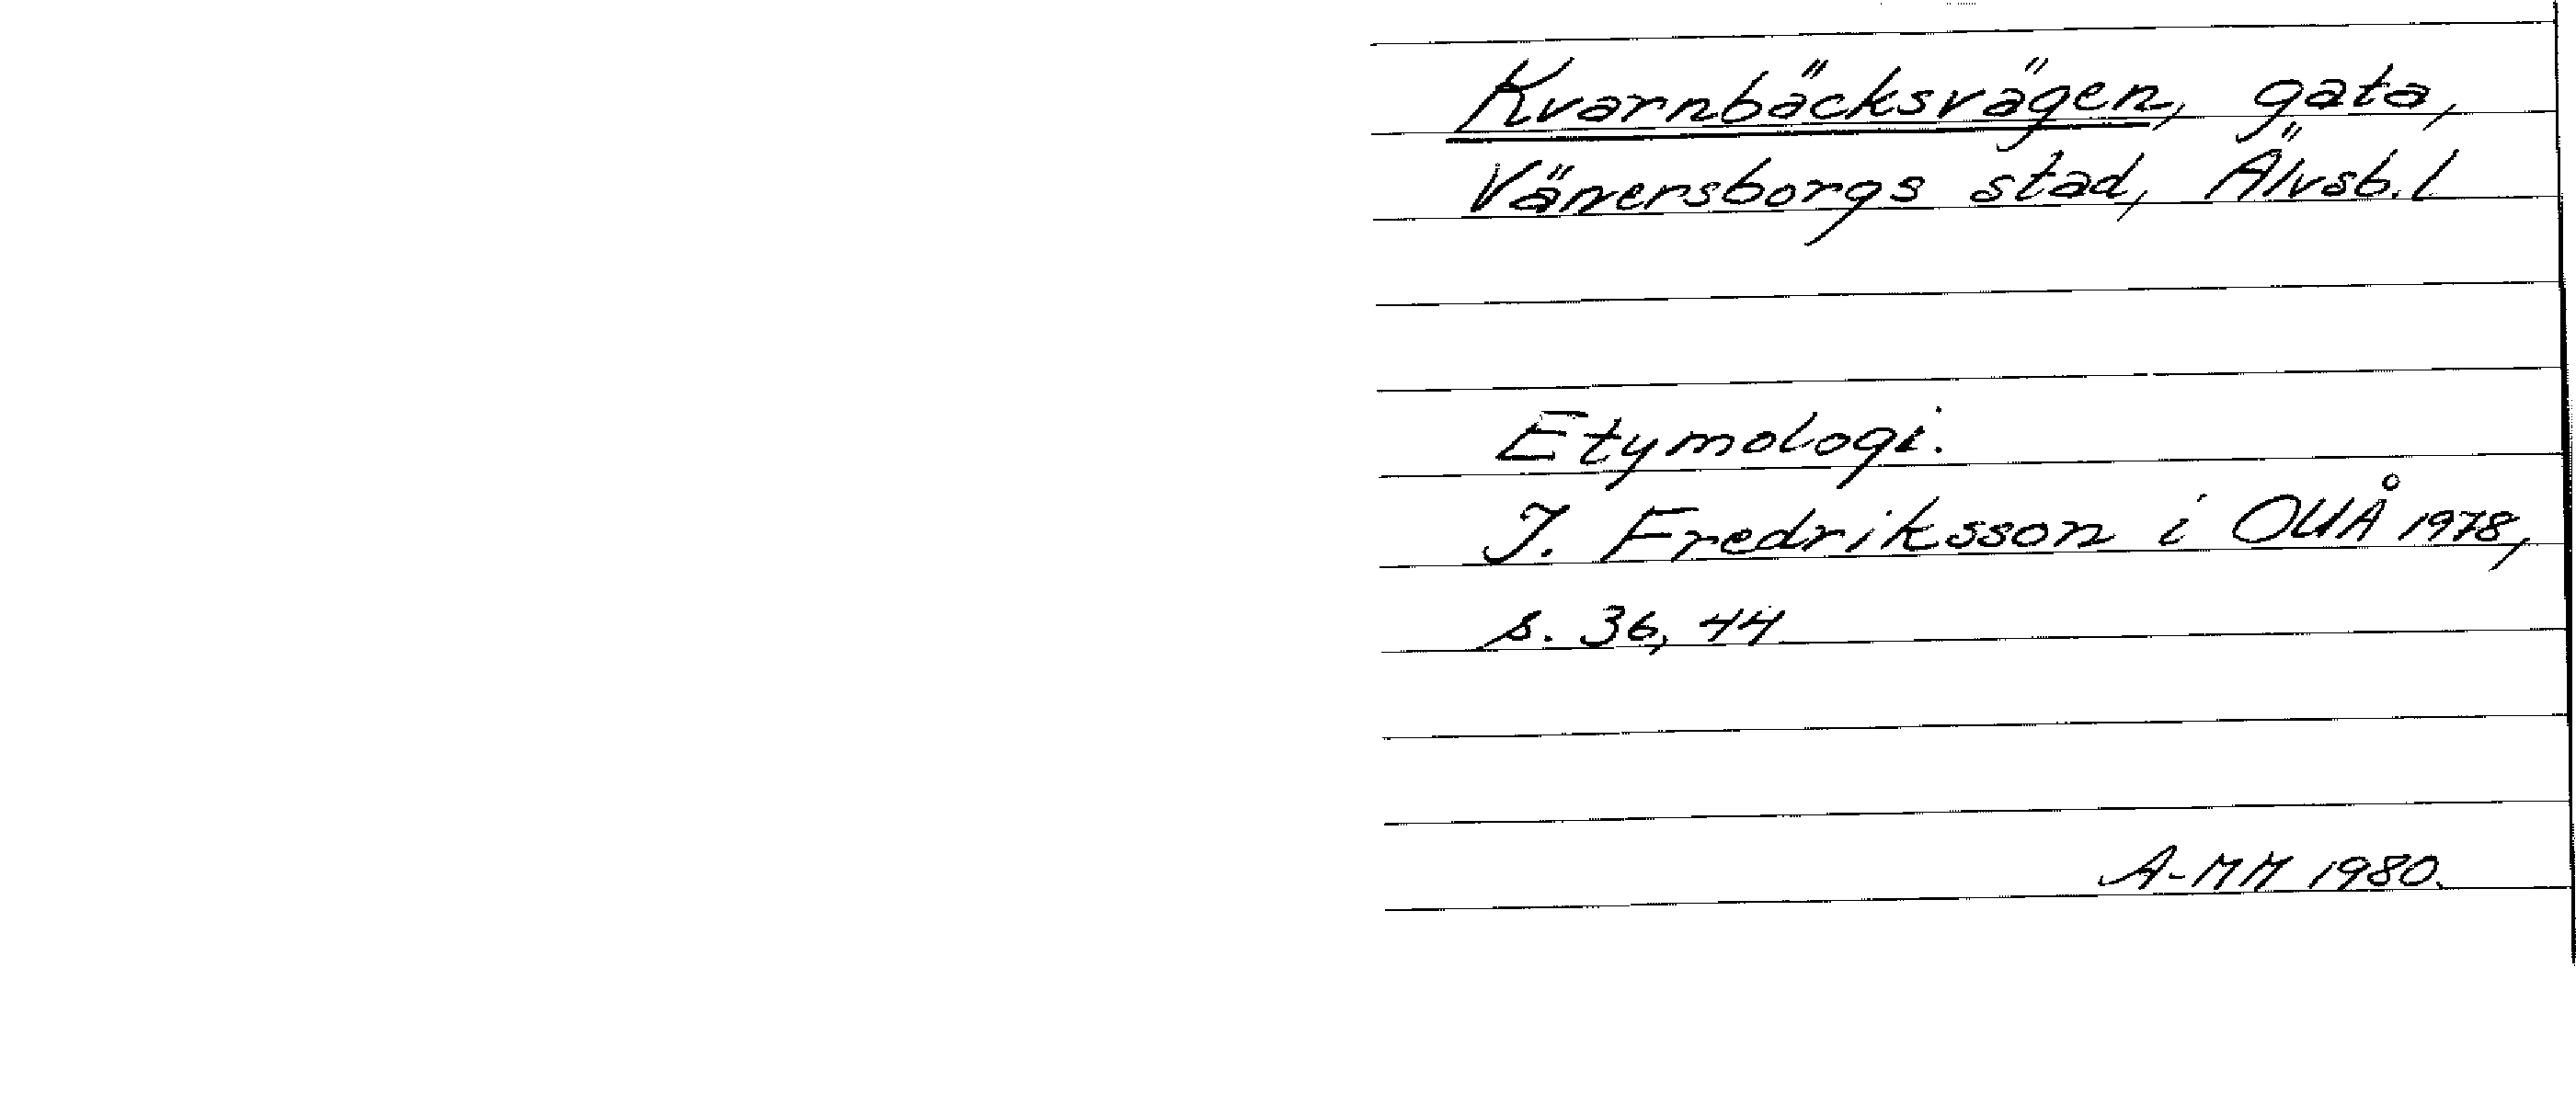 Kvarnbäcksvägen, gata,
Vänersborgs stad, Älvsb. l
Etymologi.
I. Fredriksson i OUÅ 1978,
s. 36, 44
A-MM 1980.